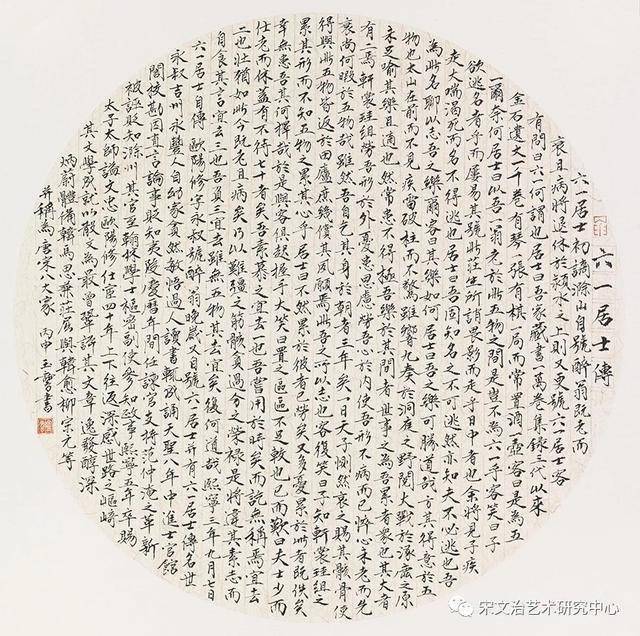 六一居士傳
六一居士初謫滁山自號醉翁既老而
衰且病將退休於潁水之上則又更號六一居士客
有問曰六一何謂也居士曰吾家藏書一萬卷集錄三代以來
金石遺文一千卷有琴一張有棋一局而常置酒一壺客曰是為五
一爾奈何居士曰以吾一翁老於此五物之間是豈不為六一乎客笑曰子
欲逃名者乎而屢易其號此莊生所誚畏影而走乎日中者也余將見子疾
走大喘渴死而名不得逃也居士曰吾固知名之不可逃然亦知夫不必逃也吾
為此名聊以志吾之樂爾客曰其樂如何居士曰吾之樂可勝道哉方其得意於五
物也太山在前而不見疾雷破柱而不驚雖響九奏於洞庭之野閱大戰於涿鹿之原
未足喻其樂且適也然常患不得極吾樂於其間者世事之為吾累者眾也其大者
有二焉軒裳珪組勞吾形於外憂患思慮勞吾心於內使吾形不病而已悴心未老而先
衰尚何暇於五物哉雖然吾自乞其身於朝者三年矣一日天子惻然哀之賜其骸骨使
得與此五物皆返於田廬庶幾償其夙願焉此吾之所以志也客復笑曰子知軒裳珪組之
累其形而不知五物之累其心乎居士曰不然累於彼者已勞矣又多憂累於此者既佚矣
幸無患吾其何擇哉於是與客俱起握手大笑曰置之區區不足較也已而歎曰夫士少而
仕老而休蓋有不待七十者矣吾素慕之宜去一也吾嘗用於時矣而訖無稱焉宜去
二也壯猶如此今既老且病矣乃以難強之筋骸貪過分之榮祿是將違其素志而
自食其言宜去三也吾負三宜去雖無五物其去宜矣復何道哉熙寧三年九月七日
六一居士自傳 歐陽修字永叔號醉翁晚歲又自號六一居士并有六一居士傳名世
永叔吉州永豐人自幼家貧然敏悟過人讀書輒成誦天聖八年中進士官館
閣校勘因直言論事貶知夷陵慶曆年間任諫官支持范仲淹之革新
被誣貶知滁州其官至翰林學士樞密副使參知政事熙寧五年卒賜
太子太師諡文忠歐陽修仕宦四十年上下往返深感世路之崎嶇
其文學成就以散文為最曾鞏評其文章逸發醇深
炳蔚體備韓馬思兼莊屈與韓愈柳宗元等
并稱為唐宋八大家 丙申 王 書
宋文治艺术研究中心